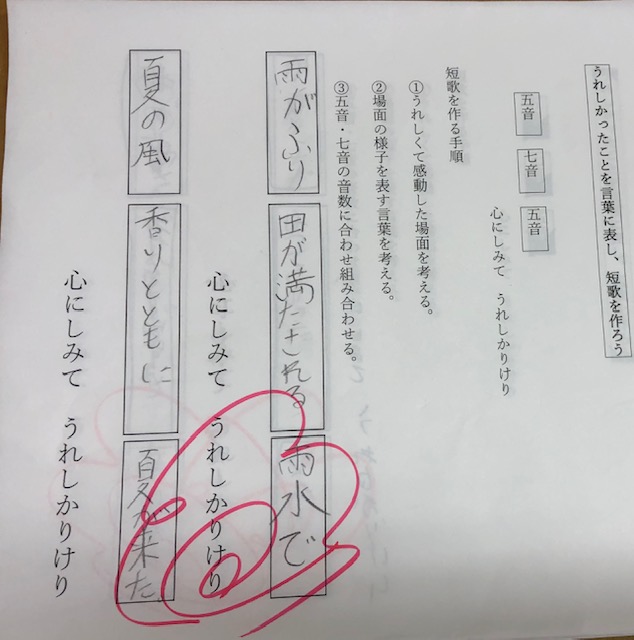 うれしかったことを言葉に表し、短歌を作ろう
五音 七音 五音
心にしみて うれしかりけり
短歌を作る手順
①うれしくて感動した場面を考える。
②場面の様子を表す言葉を考える。
③五音・七音の音数に合わせ組み合わせる。
雨がふり 田が満たされる 雨水で
心にしみて うれしかりけり
夏の風 香りとともに 夏が来た
心にしみて うれしかりけり